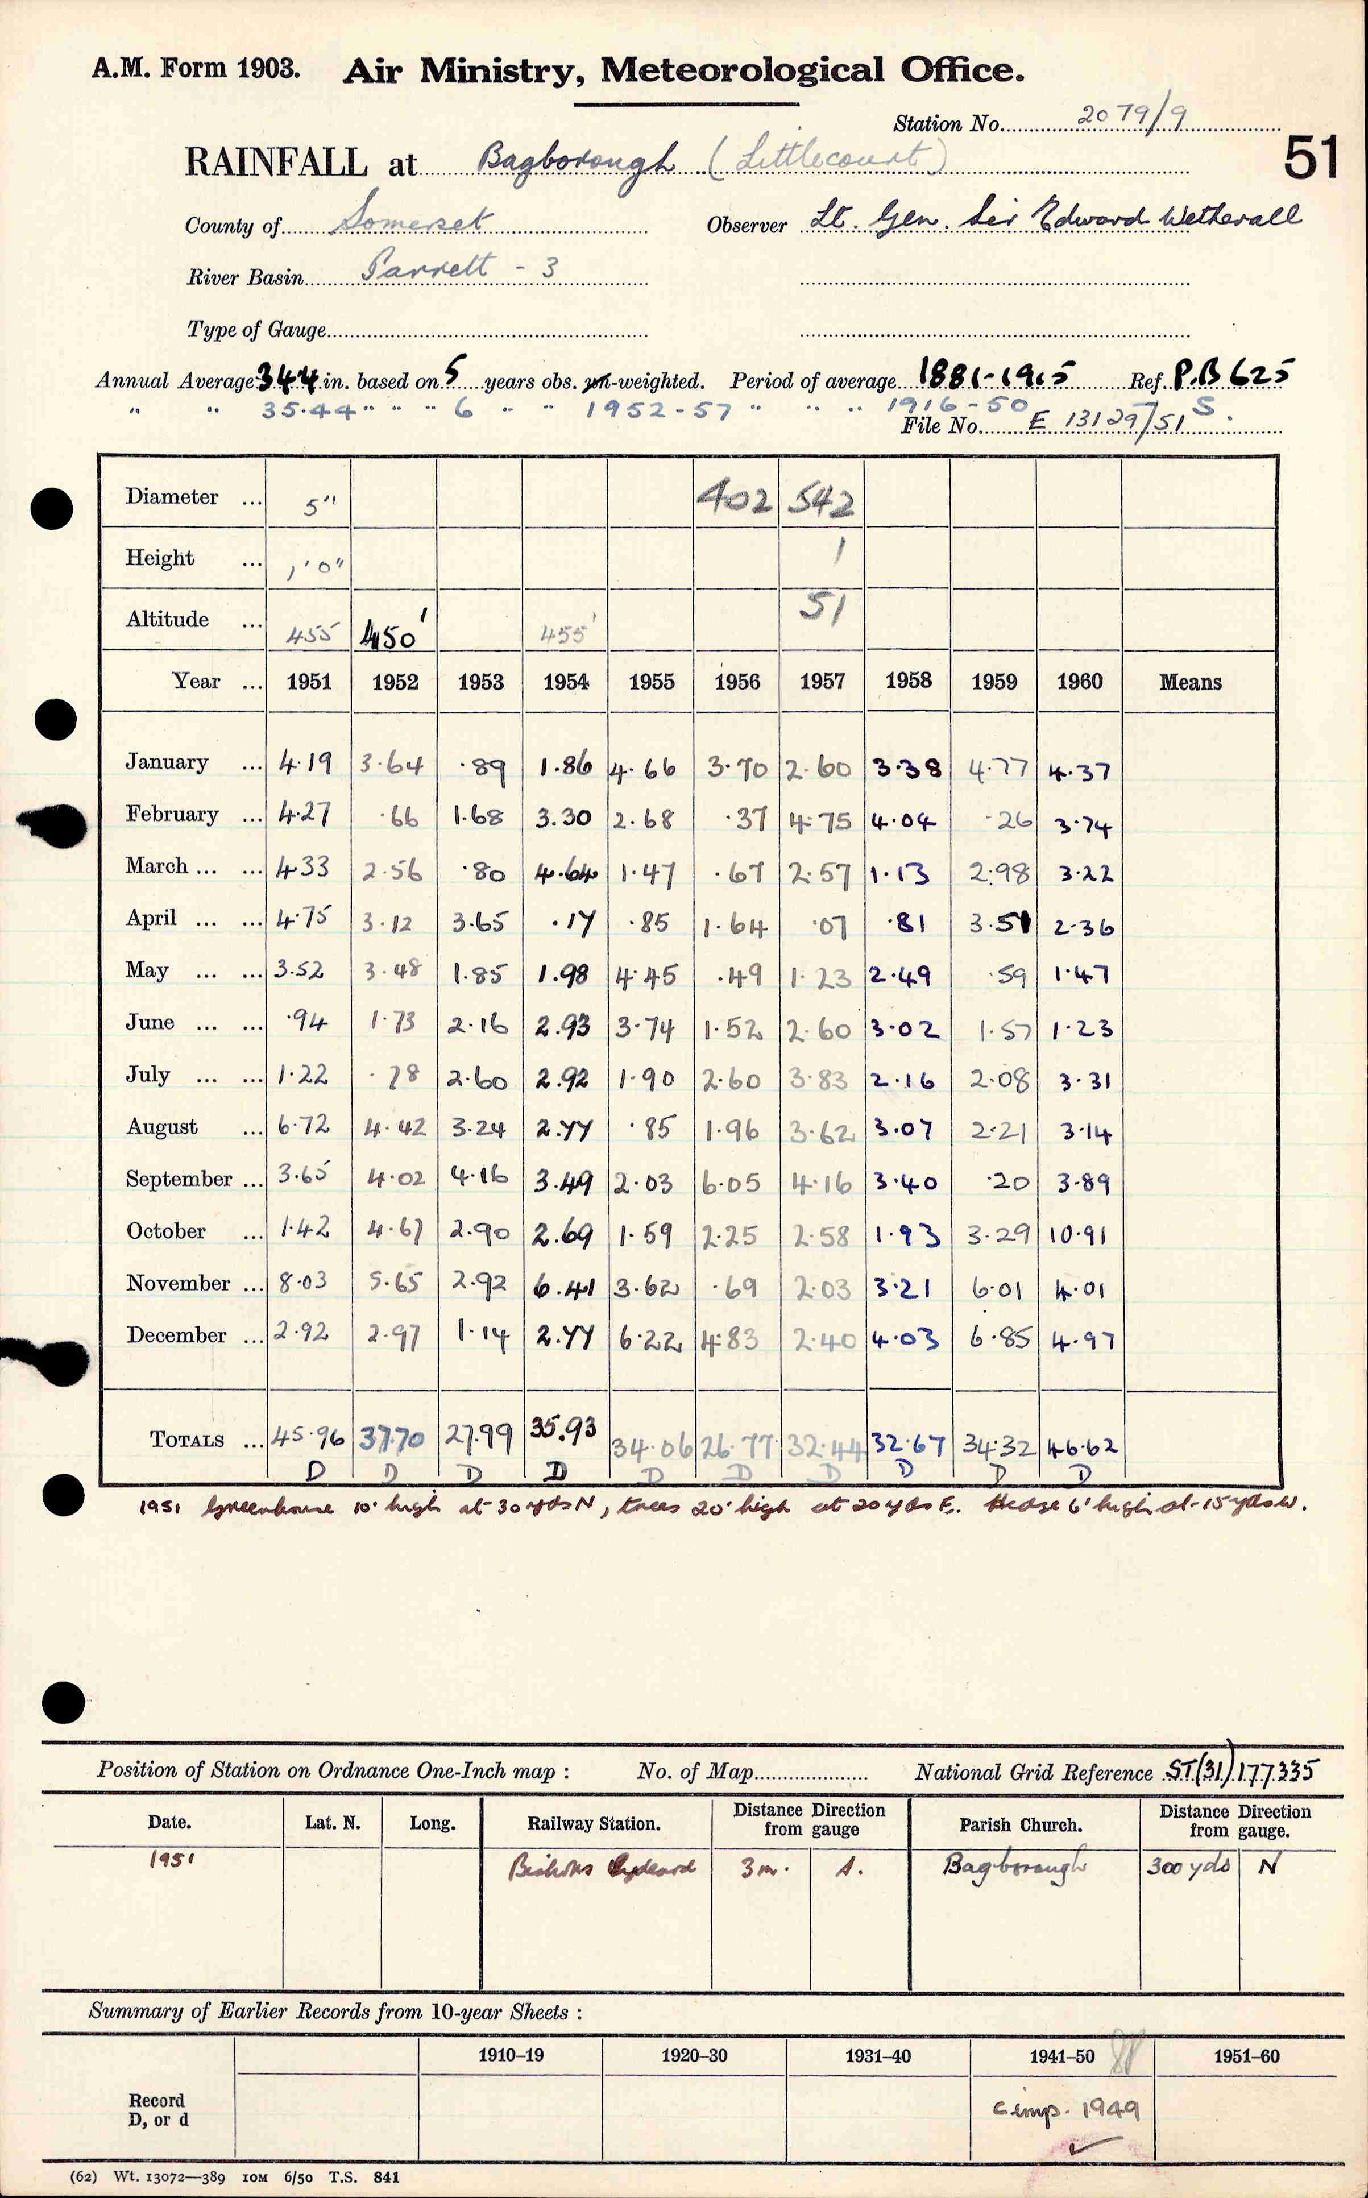 A.M. Form 1903. Air Ministry, Meteorological Office.
Station No. 2079/9
51
RAINFALL at Bagborough (Littlecourt)
County of Somerset Observer Lt. Gen. Sir Edward Wetherall
River Basin Parrett - 3
Type of Gauge
Annual Average 34.4 in. based on 5 years obs. un-weighted. Period of average 1881-1915 Ref. P.B 625
" " 35.44 " " " 6 " " 1952-57 " " " 1916-50 S.
File No. E 13129/51
Diameter ... 5" 402 542
Height ... 1'0" 1
Altitude ... 455 450' 455' 51
Year ... 1951 1952 1953 1954 1955 1956 1957 1958 1959 1960 Means
January ... 4.19 3.64 .89 1.86 4.66 3.70 2.60 3.38 4.77 4.37
February ... 4.27 .66 1.68 3.30 2.68 .37 4.75 4.04 .26 3.74
March ... ... 4.33 2.56 .80 4.64 1.47 .67 2.57 1.13 2.98 3.22
April ... ... 4.75 3.12 3.65 .17 .85 1.64 .07 .81 3.51 2.36
May ... ... 3.52 3.48 1.85 1.98 4.45 .49 1.23 2.49 .59 1.47
June ... ... .94 1.73 2.16 2.93 3.74 1.52 2.60 3.02 1.57 1.23
July ... ... 1.22 .78 2.60 2.92 1.90 2.60 3.83 2.16 2.08 3.31
August ... 6.72 4.42 3.24 2.77 .85 1.96 3.62 3.07 2.21 3.14
September ... 3.65 4.02 4.16 3.49 2.03 6.05 4.16 3.40 .20 3.89
October ... 1.42 4.67 2.90 2.69 1.59 2.25 2.58 1.93 3.29 10.91
November ... 8.03 5.65 2.92 6.41 3.62 .69 2.03 3.21 6.01 4.01
December ... 2.92 2.97 1.14 2.77 6.22 4.83 2.40 4.03 6.85 4.97
TOTALS ... 45.96 37.70 27.99 35.93 34.06 26.77 32.44 32.67 34.32 46.62
D D D D D D D D D D
1951 Greenhouse 10' high at 30 yds N, trees 20' high at 20 yds E. Hedge 6' high at 15 yds W.
Position of Station on Ordnance One-Inch map : No. of Map National Grid Reference ST(31)177335
Date. Lat. N. Long. Railway Station. Distance Direction from gauge Parish Church. Distance Direction from gauge.
1951 Bishops Lydeard 3m. S. Bagborough 300 yds N
Summary of Earlier Records from 10-year Sheets :
1910–19 1920–30 1931–40 1941–50 1951–60
Record D, or d comp. 1949
(62) Wt. 13072—389 10M 6/50 T.S. 841